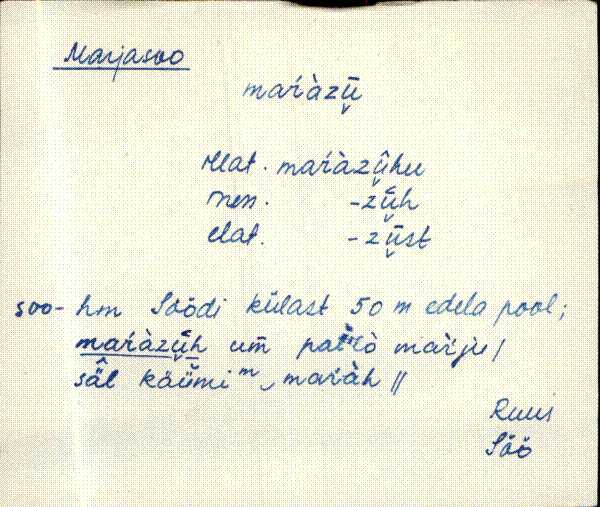 Marjasoo
maŕàzṷ̄
illat. maŕàzṷ̂hu
iness. -zṷ̂h
elat. -zṷ̄st
soo- hm Söödi külast 50 m edela pool;
maŕàzṷ̂h um̄ maŕju /
sâ̭l käṷ̆mi m, maŕàh //
Ruus
Söö